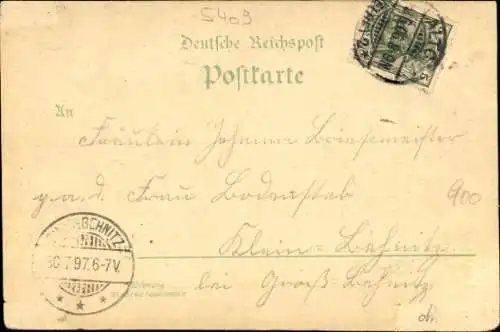 5409
Deutsche Reichspost
Postkarte
An
Fräulein Johanna Briesemeister
p. a. d. Frau Bodenstab
900
Klein-Behnitz
bei Groß-Behnitz
BEHNITZ
30 7 97. 6-7V.